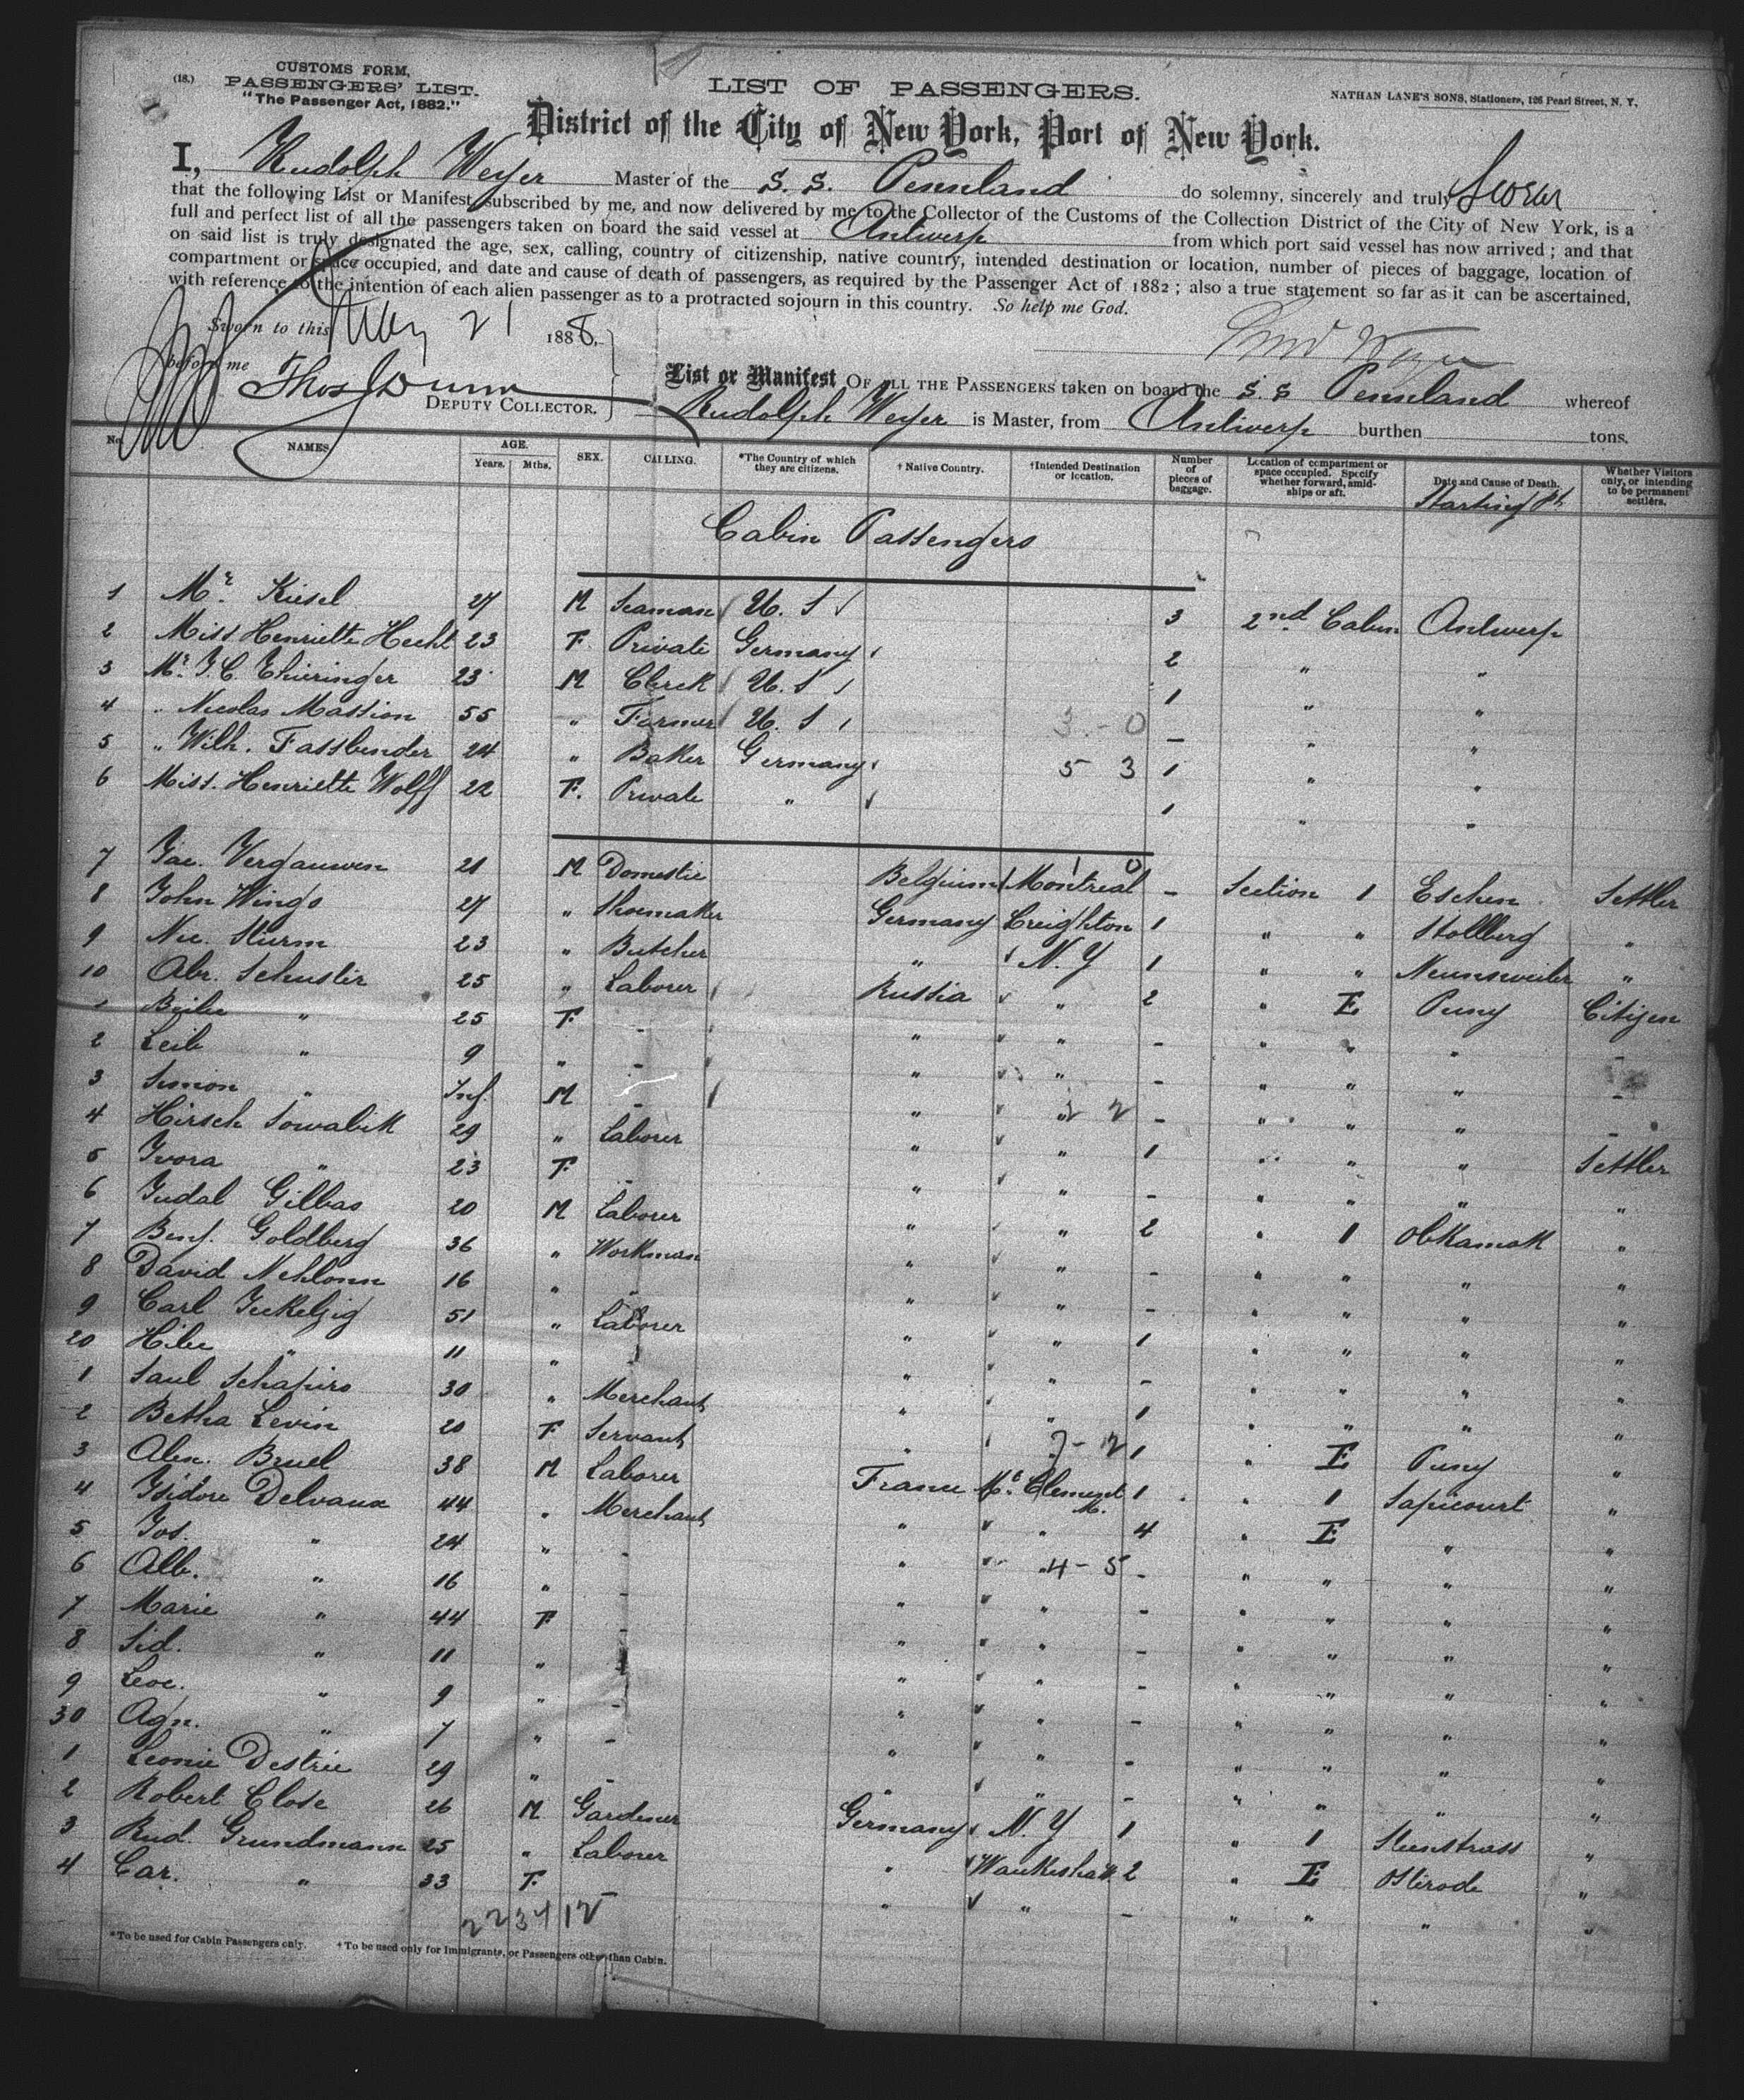 (18.)
CUSTOMS FORM,
PASSENGERS' LIST.
"The Passenger Act, 1882."
LIST OF PASSENGERS.
NATHAN LANE'S SONS, Stationers, 126 Pearl Street, N. Y.
District of the City of New York, Port of New York.
I, Rudolph Weyer Master of the S. S. Pennland do solemny, sincerely and truly Swear
that the following List or Manifest, subscribed by me, and now delivered by me to the Collector of the Customs of the Collection District of the City of New York, is a
full and perfect list of all the passengers taken on board the said vessel at Antwerp from which port said vessel has now arrived; and that
on said list is truly designated the age, sex, calling, country of citizenship, native country, intended destination or location, number of pieces of baggage, location of
compartment or space occupied, and date and cause of death of passengers, as required by the Passenger Act of 1882; also a true statement so far as it can be ascertained,
with reference to the intention of each alien passenger as to a protracted sojourn in this country. So help me God.
Sworn to this May 21 1888,
before me
Thos Dunn
DEPUTY COLLECTOR.
List or Manifest OF ALL THE PASSENGERS taken on board the S S Pennland whereof
Rudolph Weyer is Master, from Antwerp burthen tons.
No. NAMES AGE. Years. Mths. SEX. CALLING. *The Country of which they are citizens. † Native Country. †Intended Destination or location. Number of pieces of baggage. Location of compartment or space occupied. Specify whether forward, amidships or aft. Date and Cause of Death. Whether Visitors only, or intending to be permanent settlers.
Starting Pt.
Cabin Passengers
1 Mr. Kiesel 27 M Seaman U. S 3 2nd Cabin Antwerp
2 Miss Henriette Hecht 23 F. Private Germany 2 " "
3 Mr. J. C. Thieringer 23 M Clerk U. S 1 " "
4 " Nicolas Massion 55 " Farmer U. S 3 - 0 - " "
5 " Wilh. Fassbender 24 " Baker Germany 5 3 1 " "
6 Miss. Henriette Wolff 22 F. Private " 1 " "
1 0
7 Jac. Vergauwen 21 M Domestic Belgium Montreal - Section 1 Eschen Settler
8 John Wings 27 " Shoemaker Germany Creighton 1 " " Stollberg "
9 Nic. Sturm 23 " Butcher " N. Y 1 " " Neunsweiler "
10 Abr. Schuster 25 " Laborer Russia " 2 " E Puny Citizen
1 Beile " 25 F. - " " - " " "
2 Leib " 9 " - " " - " " " -
3 Simon " Inf. M - " " 2 2 - " " " -
4 Hirsch Sowabik 29 " Laborer " " 1 " " " Settler
5 Ivora " 23 F. - " " - " " " "
6 Judal Gilbas 20 M Laborer " " 2 " 1 Obkamak "
7 Benj. Goldberg 36 " Workman " " - " " " "
8 David Nehlonn 16 " - " " - " " " "
9 Carl Jeekelzig 51 " Laborer " " 1 " " " "
20 Hilie " 11 " " " - " " " "
1 Saul Schapiro 30 " Merchant " " 1 " " " "
2 Betha Levin 20 F Servant " 1 " E Puny "
3 Alex. Bruel 38 M Laborer France Mt. Clement M. 1 " 1 Sapicourt "
4 Isidore Delvaux 44 " Merchant " " 4 " E " "
5 Jos. " 24 " - " " 4 - 5 - " " " "
6 Alb. " 16 " - " " - " " " "
7 Marie " 44 F - " " - " " " "
8 Sid. " 11 " " " - " " " "
9 Leoc. " 9 " - " " - " " " "
30 Agn. " 7 " - " " - " " " "
1 Leonie Destrie 29 " - " " - " " " "
2 Robert Close 26 M Gardener Germany N. Y 1 " 1 Steinstrass "
3 Rud. Grundmann 25 " Laborer " Waukesha W. 2 " E Osterode "
4 Car. " 33 F. " " - " " " "
*To be used for Cabin Passengers only. †To be used only for Immigrants, or Passengers other than Cabin.